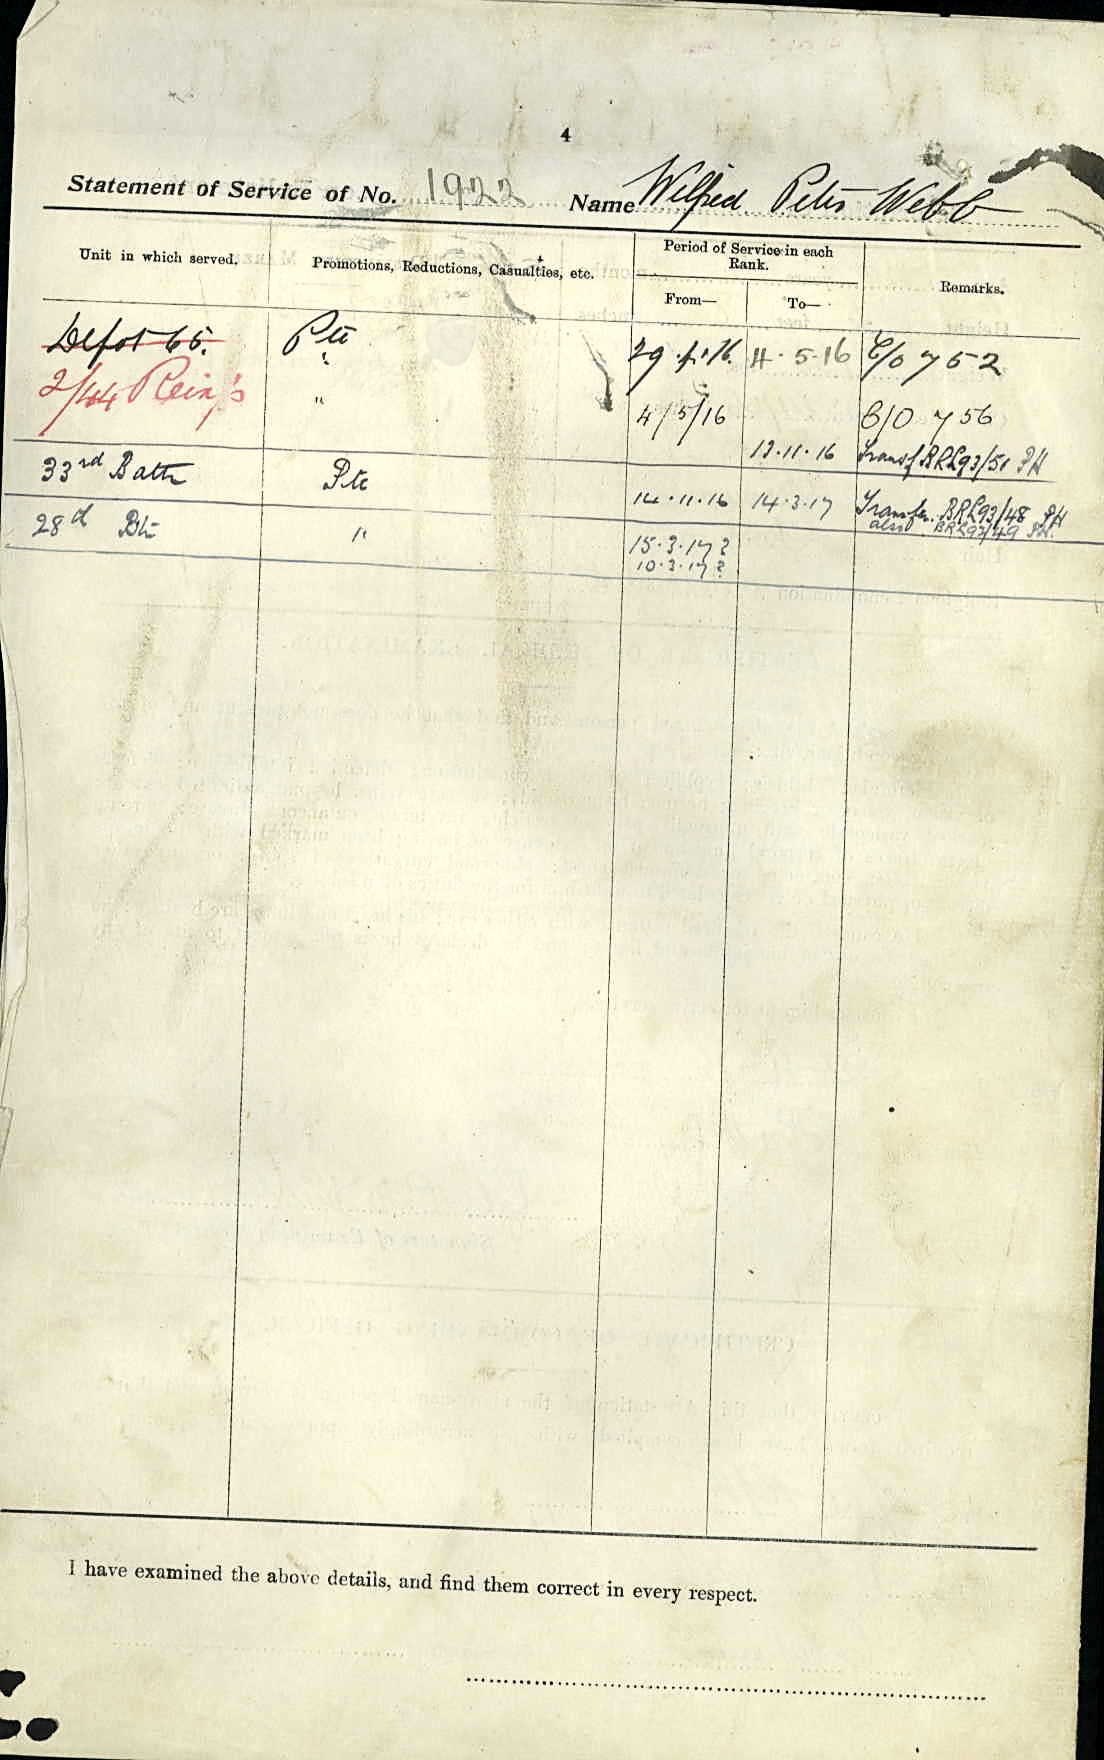 4
Statement of Service of No. 1922 Name Wilfred Peter Webb
Unit in which served. Promotions, Reductions, Casualties, etc. Period of Service in each Rank. Remarks.
From— To—
Depot 65. Pte 29.4.16. 4.5.16 C/O 752
2/44 Rein's " 4/5/16 C/O 756
13.11.16 Transf BRL93/51 PH
33rd Battn Pte 14.11.16 14.3.17 Transfer. BRL93/48 PH
also BRL93/49 PH.
28th Btn " 15.3.17?
10.3.17?
I have examined the above details, and find them correct in every respect.